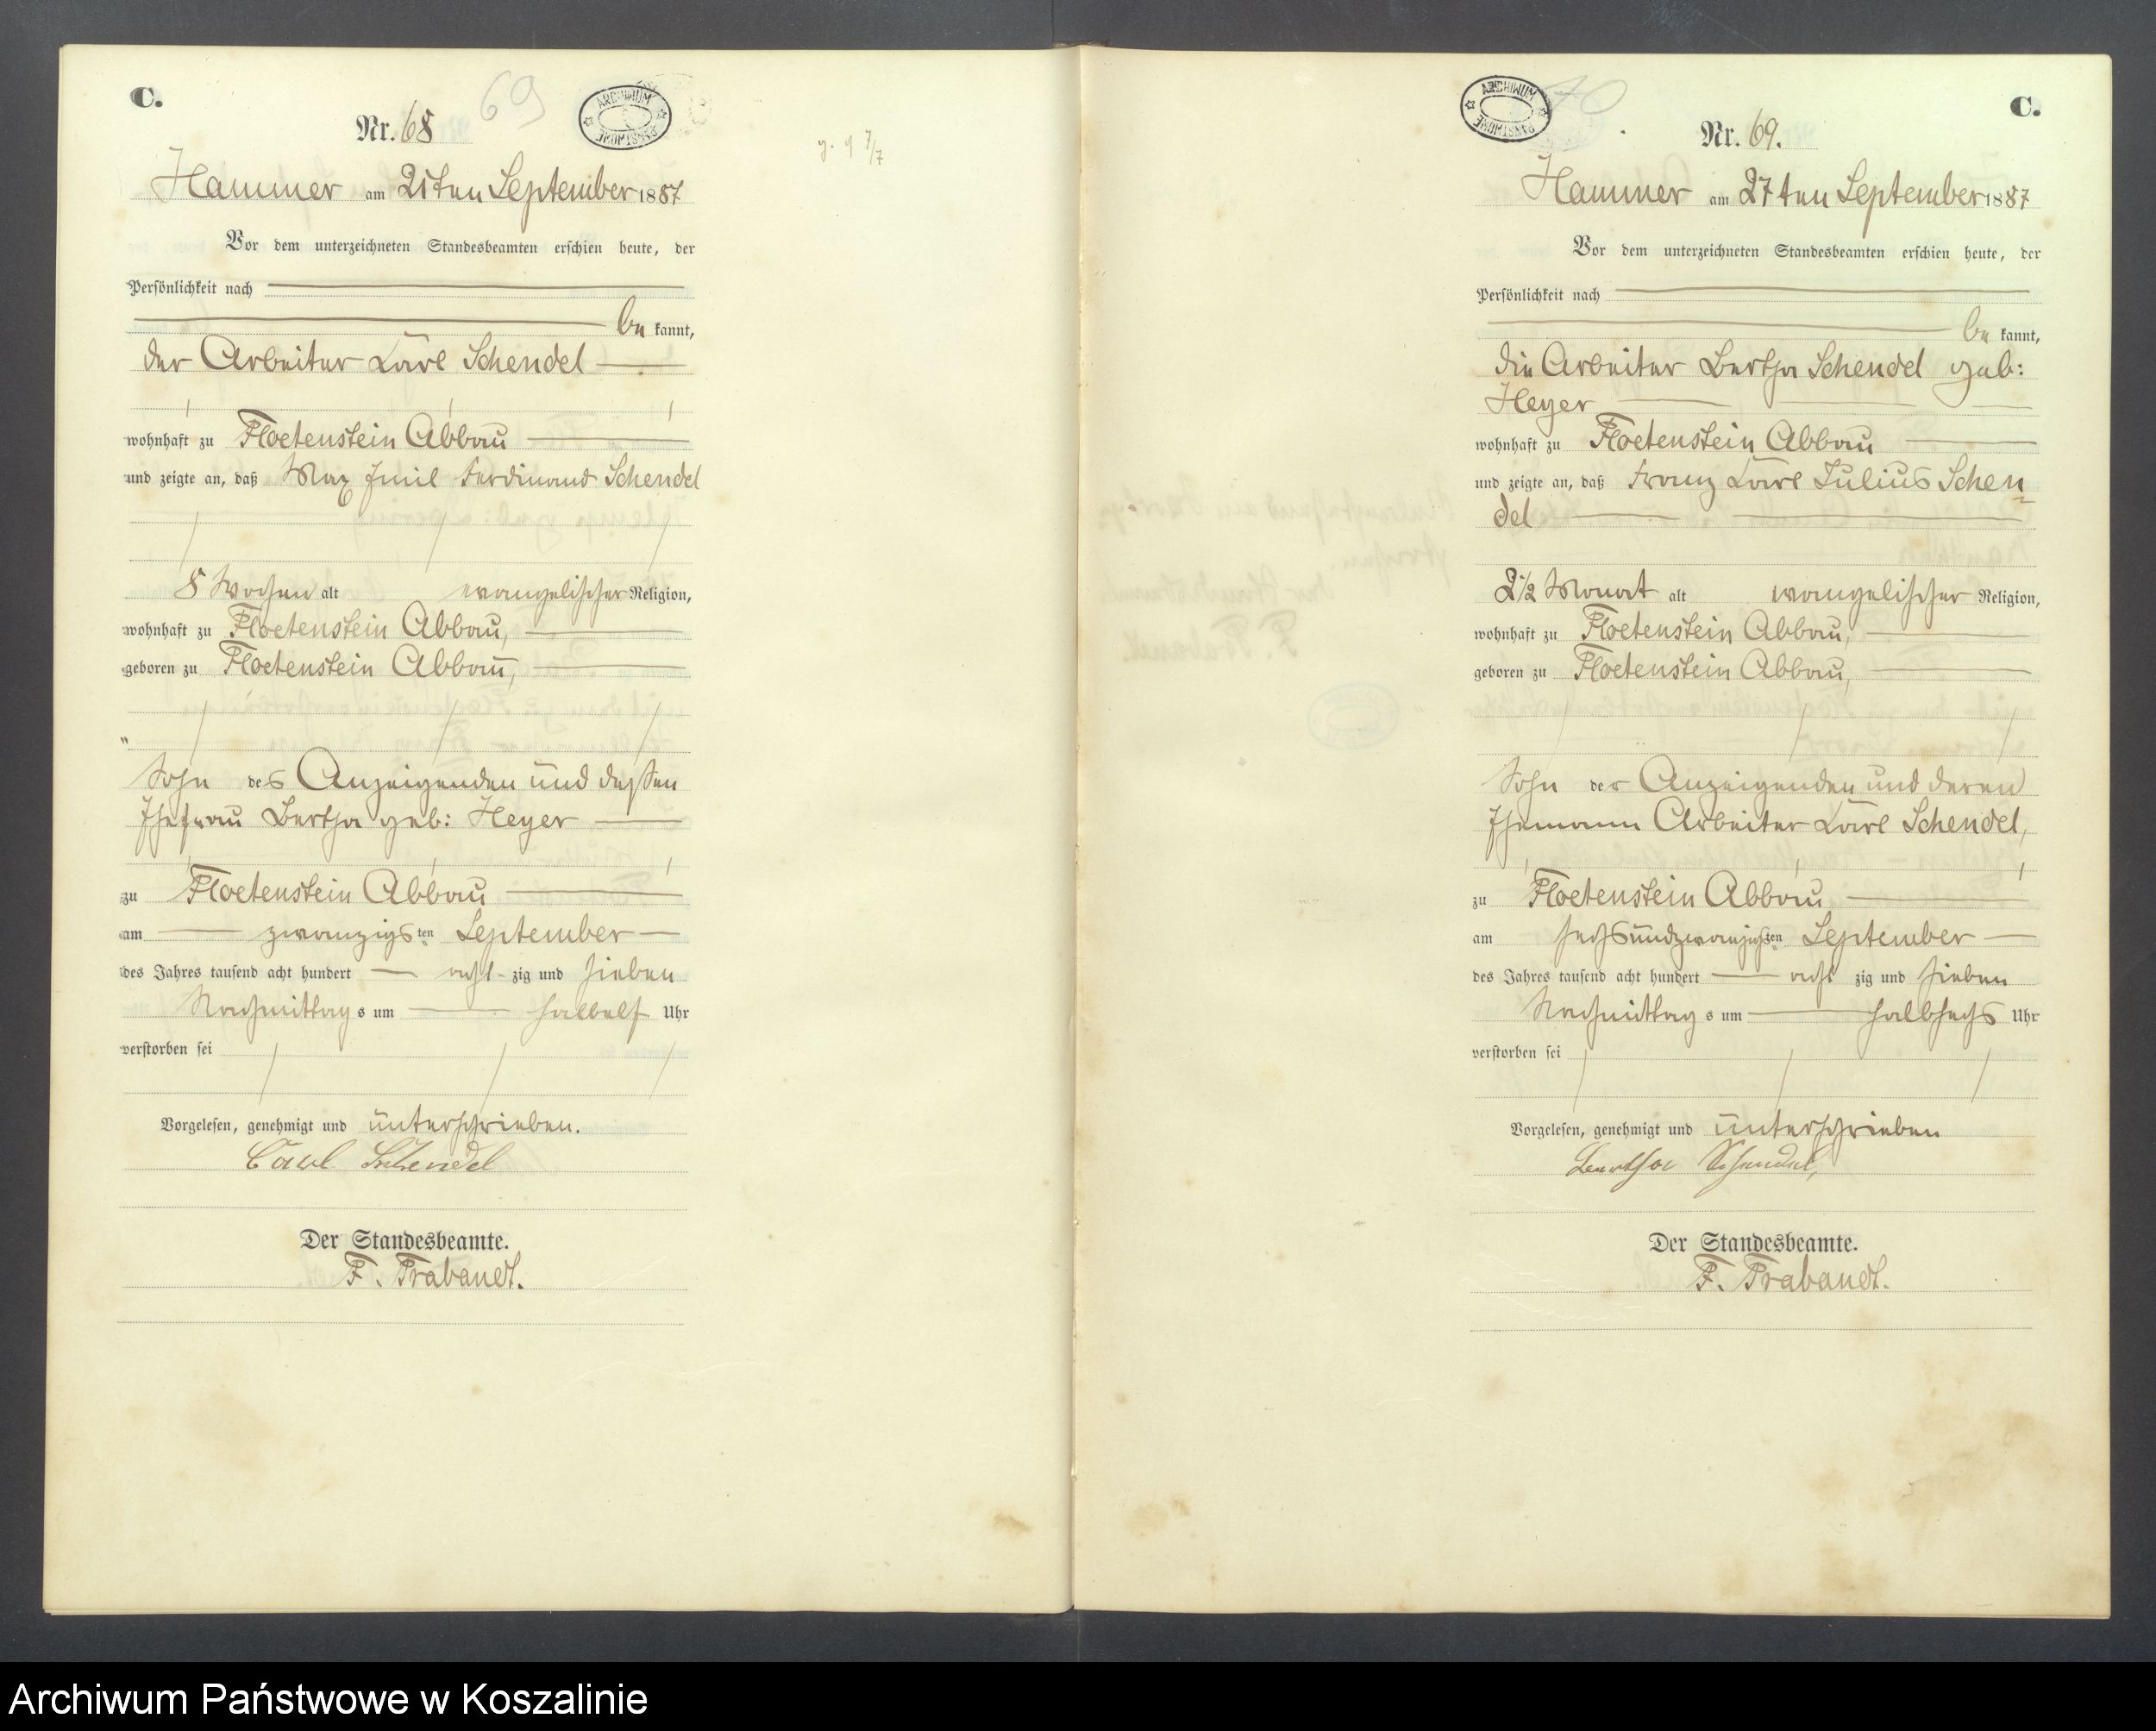 C.
69
ARCHIWUM PAŃSTWOWE
Nr. 68
Hammer am 21ten September 1887
Vor dem unterzeichneten Standesbeamten erschien heute, der
Persönlichkeit nach
be kannt,
der Arbeiter Karl Schendel
wohnhaft zu Floetenstein Abbau
und zeigte an, daß Max Emil Ferdinand Schendel
8 Wochen alt evangelischer Religion,
wohnhaft zu Floetenstein Abbau,
geboren zu Floetenstein Abbau,
Sohn des Anzeigenden und dessen
Ehefrau Bertha geb: Heyer
zu Floetenstein Abbau
am zwanzigsten September
des Jahres tausend acht hundert acht-zig und sieben
Nachmittags um halbelf Uhr
verstorben sei
Vorgelesen, genehmigt und unterschrieben.
Carl Schendel
Der Standesbeamte.
F. Trabandt.
ARCHIWUM PAŃSTWOWE
70
C.
Nr. 69.
Hammer am 27ten September 1887
Vor dem unterzeichneten Standesbeamten erschien heute, der
Persönlichkeit nach
be kannt,
die Arbeiter Bertha Schendel geb:
Heyer
wohnhaft zu Floetenstein Abbau
und zeigte an, daß Franz Karl Julius Schen=
del
2 1/2 Monat alt evangelischer Religion,
wohnhaft zu Floetenstein Abbau,
geboren zu Floetenstein Abbau,
Sohn der Anzeigenden und deren
Ehemann Arbeiter Karl Schendel,
zu Floetenstein Abbau
am sechsundzwanzigsten September
des Jahres tausend acht hundert acht zig und sieben
Nachmittags um halbsechs Uhr
verstorben sei
Vorgelesen, genehmigt und unterschrieben
Bertha Schendel,
Der Standesbeamte.
F. Trabandt.
Archiwum Państwowe w Koszalinie